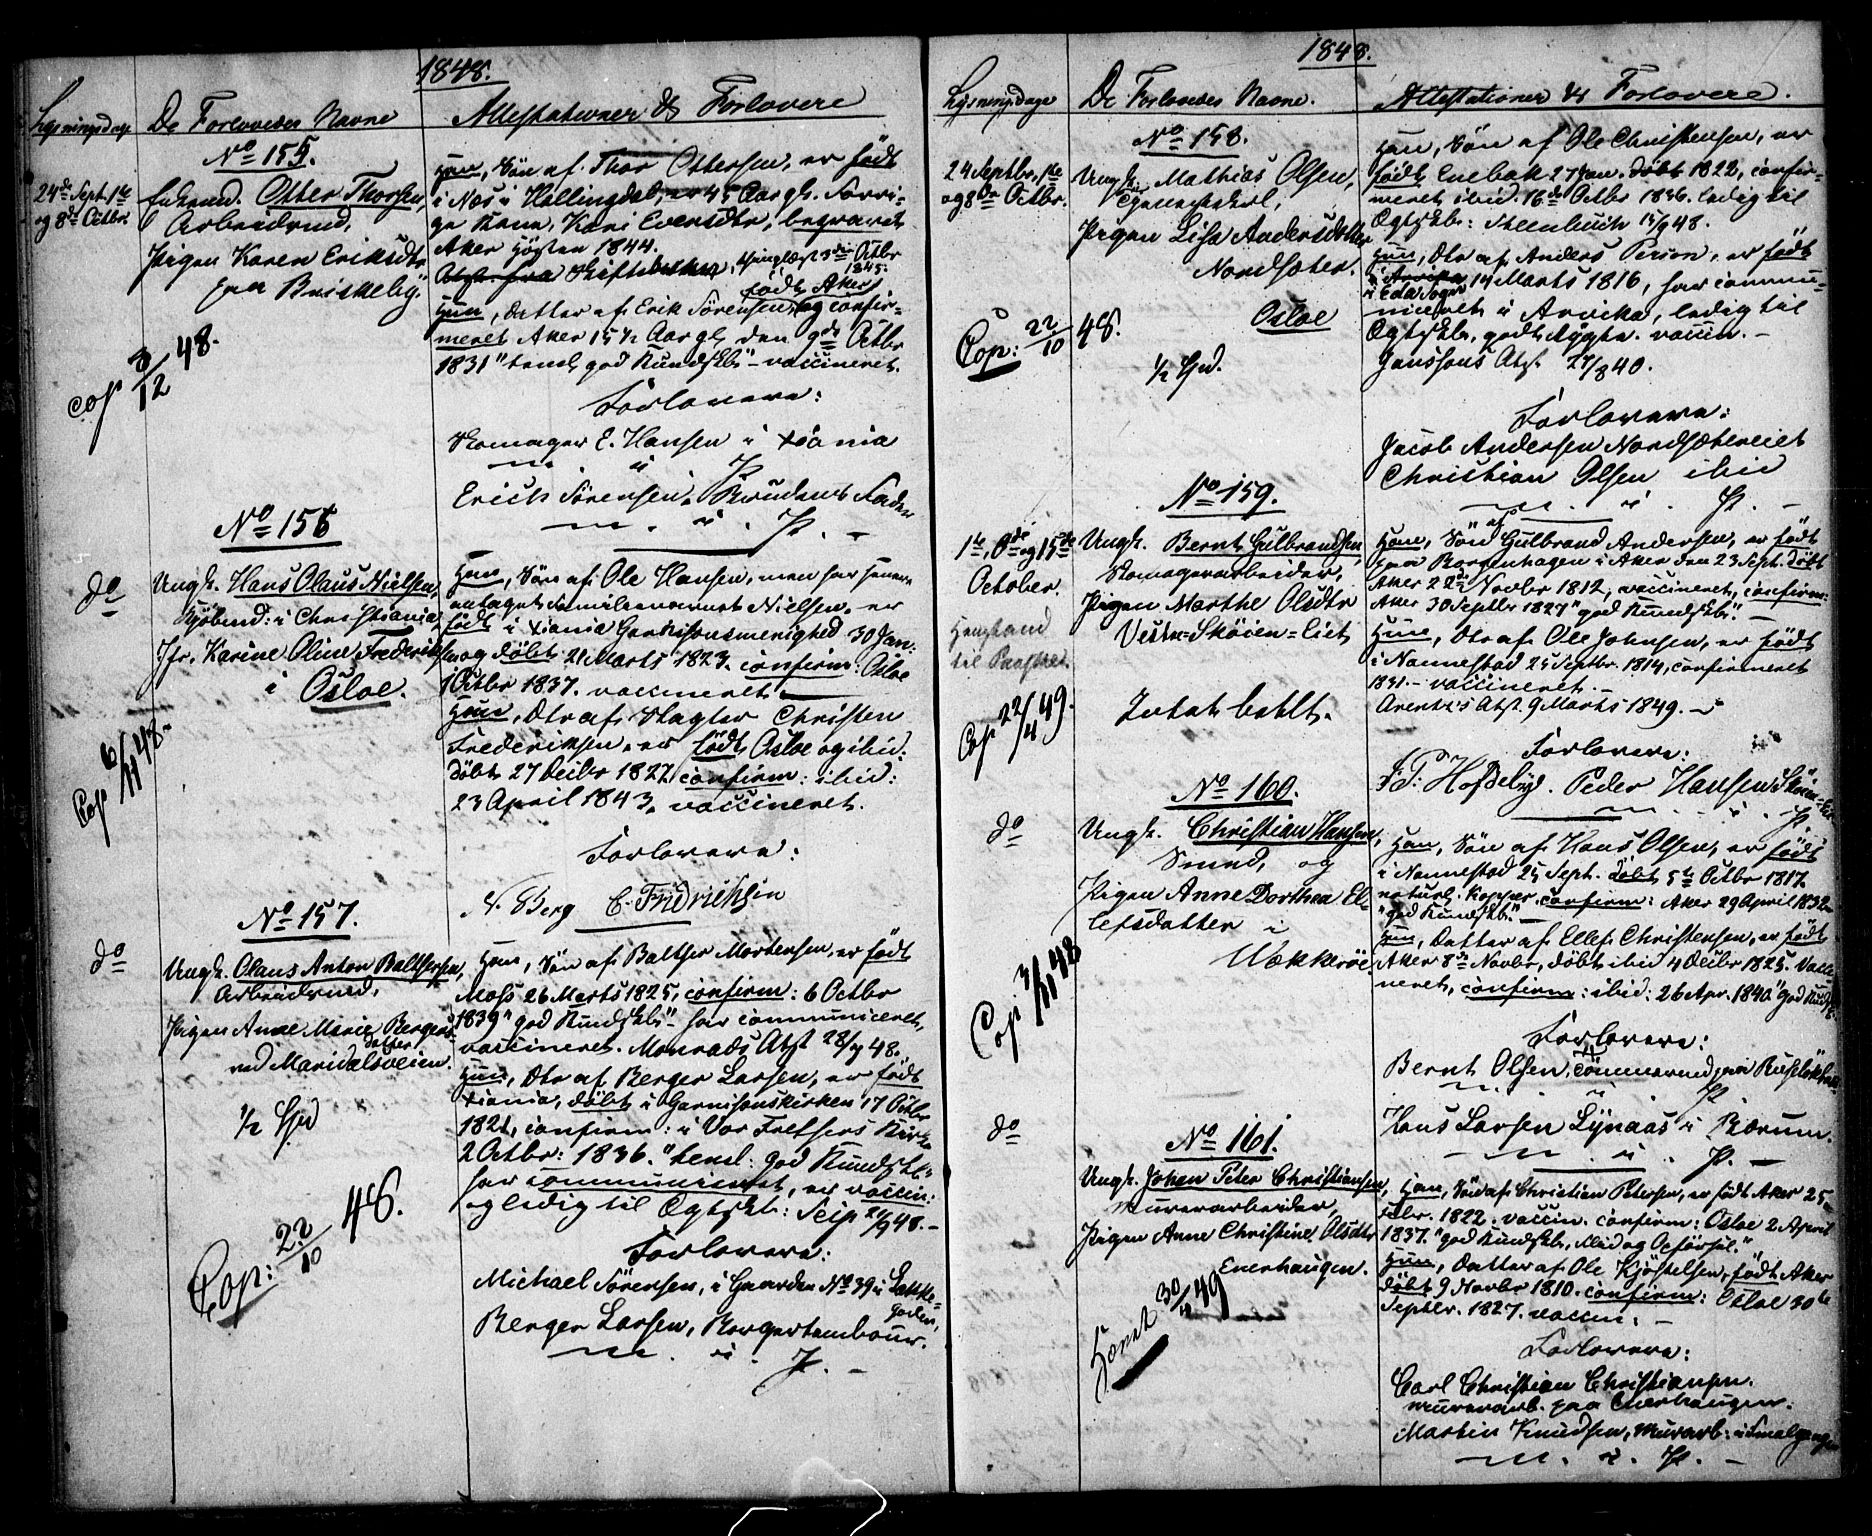 1848.
Lysningsdage
De Forlovedes Navne
Attestationer & Forlovere
No 155.
24de Sept. 1te
og 8de Octbr.
Enkemd. Otter Thorsen,
Arbeidsmd,
Pigen Karen Eriksdtr
paa Briskeby.
Cop 3/12 48.
Han, Søn af Thor Ottersen, er født
i Næs i Hallingdal, er 45 Aar gl. Forri-
ge Kone, Kari Evensdtr, begravet
Aker Høsten 1844.
Atst. fra Skifteretten, thinglæst 3die Octbr
1845.
født Aker,
Hun, Datter af Erik Sørensen, og confir-
meret Aker 15 1/2 Aar gl. den 9de Octbr
1831 "teml. god Kundskb" - vaccineret.
Forlovere:
Skomager E. Hansen i Xiania
m. i P.
Erich Sørensen, Brudens Fader
m. i. P. -
No 156
do
Ungk. Hans Olaus Nielsen,
Kjøbmd: i Christiania,
Jfr. Karine Oline Frederiksen
i Osloe.
Cop 6/11 48.
Han, Søn af Ole Hansen, men har senere
antaget Familienavnet Nielsen, er
født i Xiania Garnisonsmenighed 30 Jan:
og døbt 21 Marts 1823. confirm: Osloe
1 Octbr 1837. vaccineret.
Hun, Dtr af Slagter Christen
Frederiksen, er født Osloe og ibid:
døbt 27 Decbr 1827 confirm: ibid:
23 April 1843, vaccineret.
Forlovere:
N. Berg C. Fridrichsen
No 157.
do
Ungk. Olaus Anton Balthersen,
Arbeidsmd,
Pigen Anne Marie Bergers-
datter
ved Maridalsveien.
1/2 Spd
Cop: 22/10 48.
Han, Søn af Balther Mortensen, er født
Moss 26 Marts 1825, confirm: 6 Octbr
1839 "god Kundskb" - har communiceret,
vaccineret. Monrads Atst 28/7 48.
Hun, Dtr af Berger Larsen, er født
Xiania, døbt i Garnisonskirken 17 Octbr
1821, confirm: i Vor Frelsers Kirke
2 Octbr: 1836. "teml: god Kundskb"
har communiceret, er vaccin:
og ledig til Ægtskb: Seip 21/9 48. -
Forlovere:
Michael Sørensen, i Gaarden No 39 i Lakke-
gaden,
Berger Larsen, Borgertambour.
m. i. P. -
1848.
Lysningsdage
De Forlovedes Navne.
Attestationer & Forlovere.
No 158.
24 Septbr, 1te
og 8de Octbr.
Ungk. Mathias Olsen,
Pigen Lisa Andersdatter
Nordsæter.
Osloe
Cop: 22/10 48.
1/2 Spd.
Han, Søn af Ole Christensen, er
født Enebak 27 Jan. døbt 1822, confir-
meret ibid. 16de Octbr 1836. ledig til
Ægtskb: Steenbuch 15/9 48.
Hun, Dtr af Anders Person, er født
i Arvika
i Eda Sogn 14 Marts 1816, har commu-
niceret i Arvika, ledig til
Ægtskb, godt Rygte. vaccin. -
Janssons Atst. 27/8 40.
Forlovere:
Jacob Andersen Nordsætereiet
Christian Olsen ibid
m. i. P. -
No 159.
1te, 8de og 15de
October.
Henstand
til Paaske.
Ungk. Bernt Gulbrandsen,
Skomagerarbeider,
Pigen Marthe Olsdtr
Vestre-Skøien-Eiet
Cop 22/4 49.
Intet betlt.
Han, Søn af Gulbrand Andersen, er født
paa Borgenhagen i Aker den 23 Sept. døbt
Aker 22de Novbr 1812, vaccineret, confirm:
Aker 30 Septbr 1827 "god Kundskb". -
Hun, Dtr af Ole Johnsen, er født
i Nannestad 25 Septbr. 1814, confirmeret
1831. - vaccineret. -
Arentz's Atst. 9 Marts 1849.
Forlovere:
Peder Hansen
m. i. P.
No 160.
do
Ungk. Christian Hansen,
Smed, og
Pigen Anne Dorthea El-
lefsdatter i
Wækkerøe
Cop 3/11 48
Han, Søn af Hans Olsen, er født
i Nannestad 25 Sept. døbt 5te Octbr 1817.
naturl. Kopper. confirm: Aker 29 April 1832
"god Kundskb." -
Hun, Datter af Ellef Christensen, er født
Aker 8de Novbr, døbt ibid 4 Decbr 1825. Vacci-
neret, confirm: ibid: 26 Apr. 1840 "god Kundsk.
Forlovere:
Bernt Olsen, Tømmermd paa Ruseløkbakken
m. i P.
Hans Larsen Lynaas i Bærum.
m. i. P. -
No 161.
do
Ungk. Johan Peter Christiansen,
Murerarbeider,
Pigen Anne Christine Olsdtr
Enerhaugen.
Hævet 30/4 49
Han, Søn af Christian Petersen, er født Aker 25
1822. vaccin. confirm: Osloe 2 April
1837. "god Kundskb, Flid og Opførsel."
Hun, Datter af Ole Kjøstelsen, født Aker
døbt 9 Novbr 1810. confirm: Osloe 30te
Septbr. 1827. vaccin. -
Forlovere:
Carl Christian Christiansen.
Murerarb. paa Enerhaugen.
Martin Knudsen, Murarb: i Smalgangen
m. i. P. -